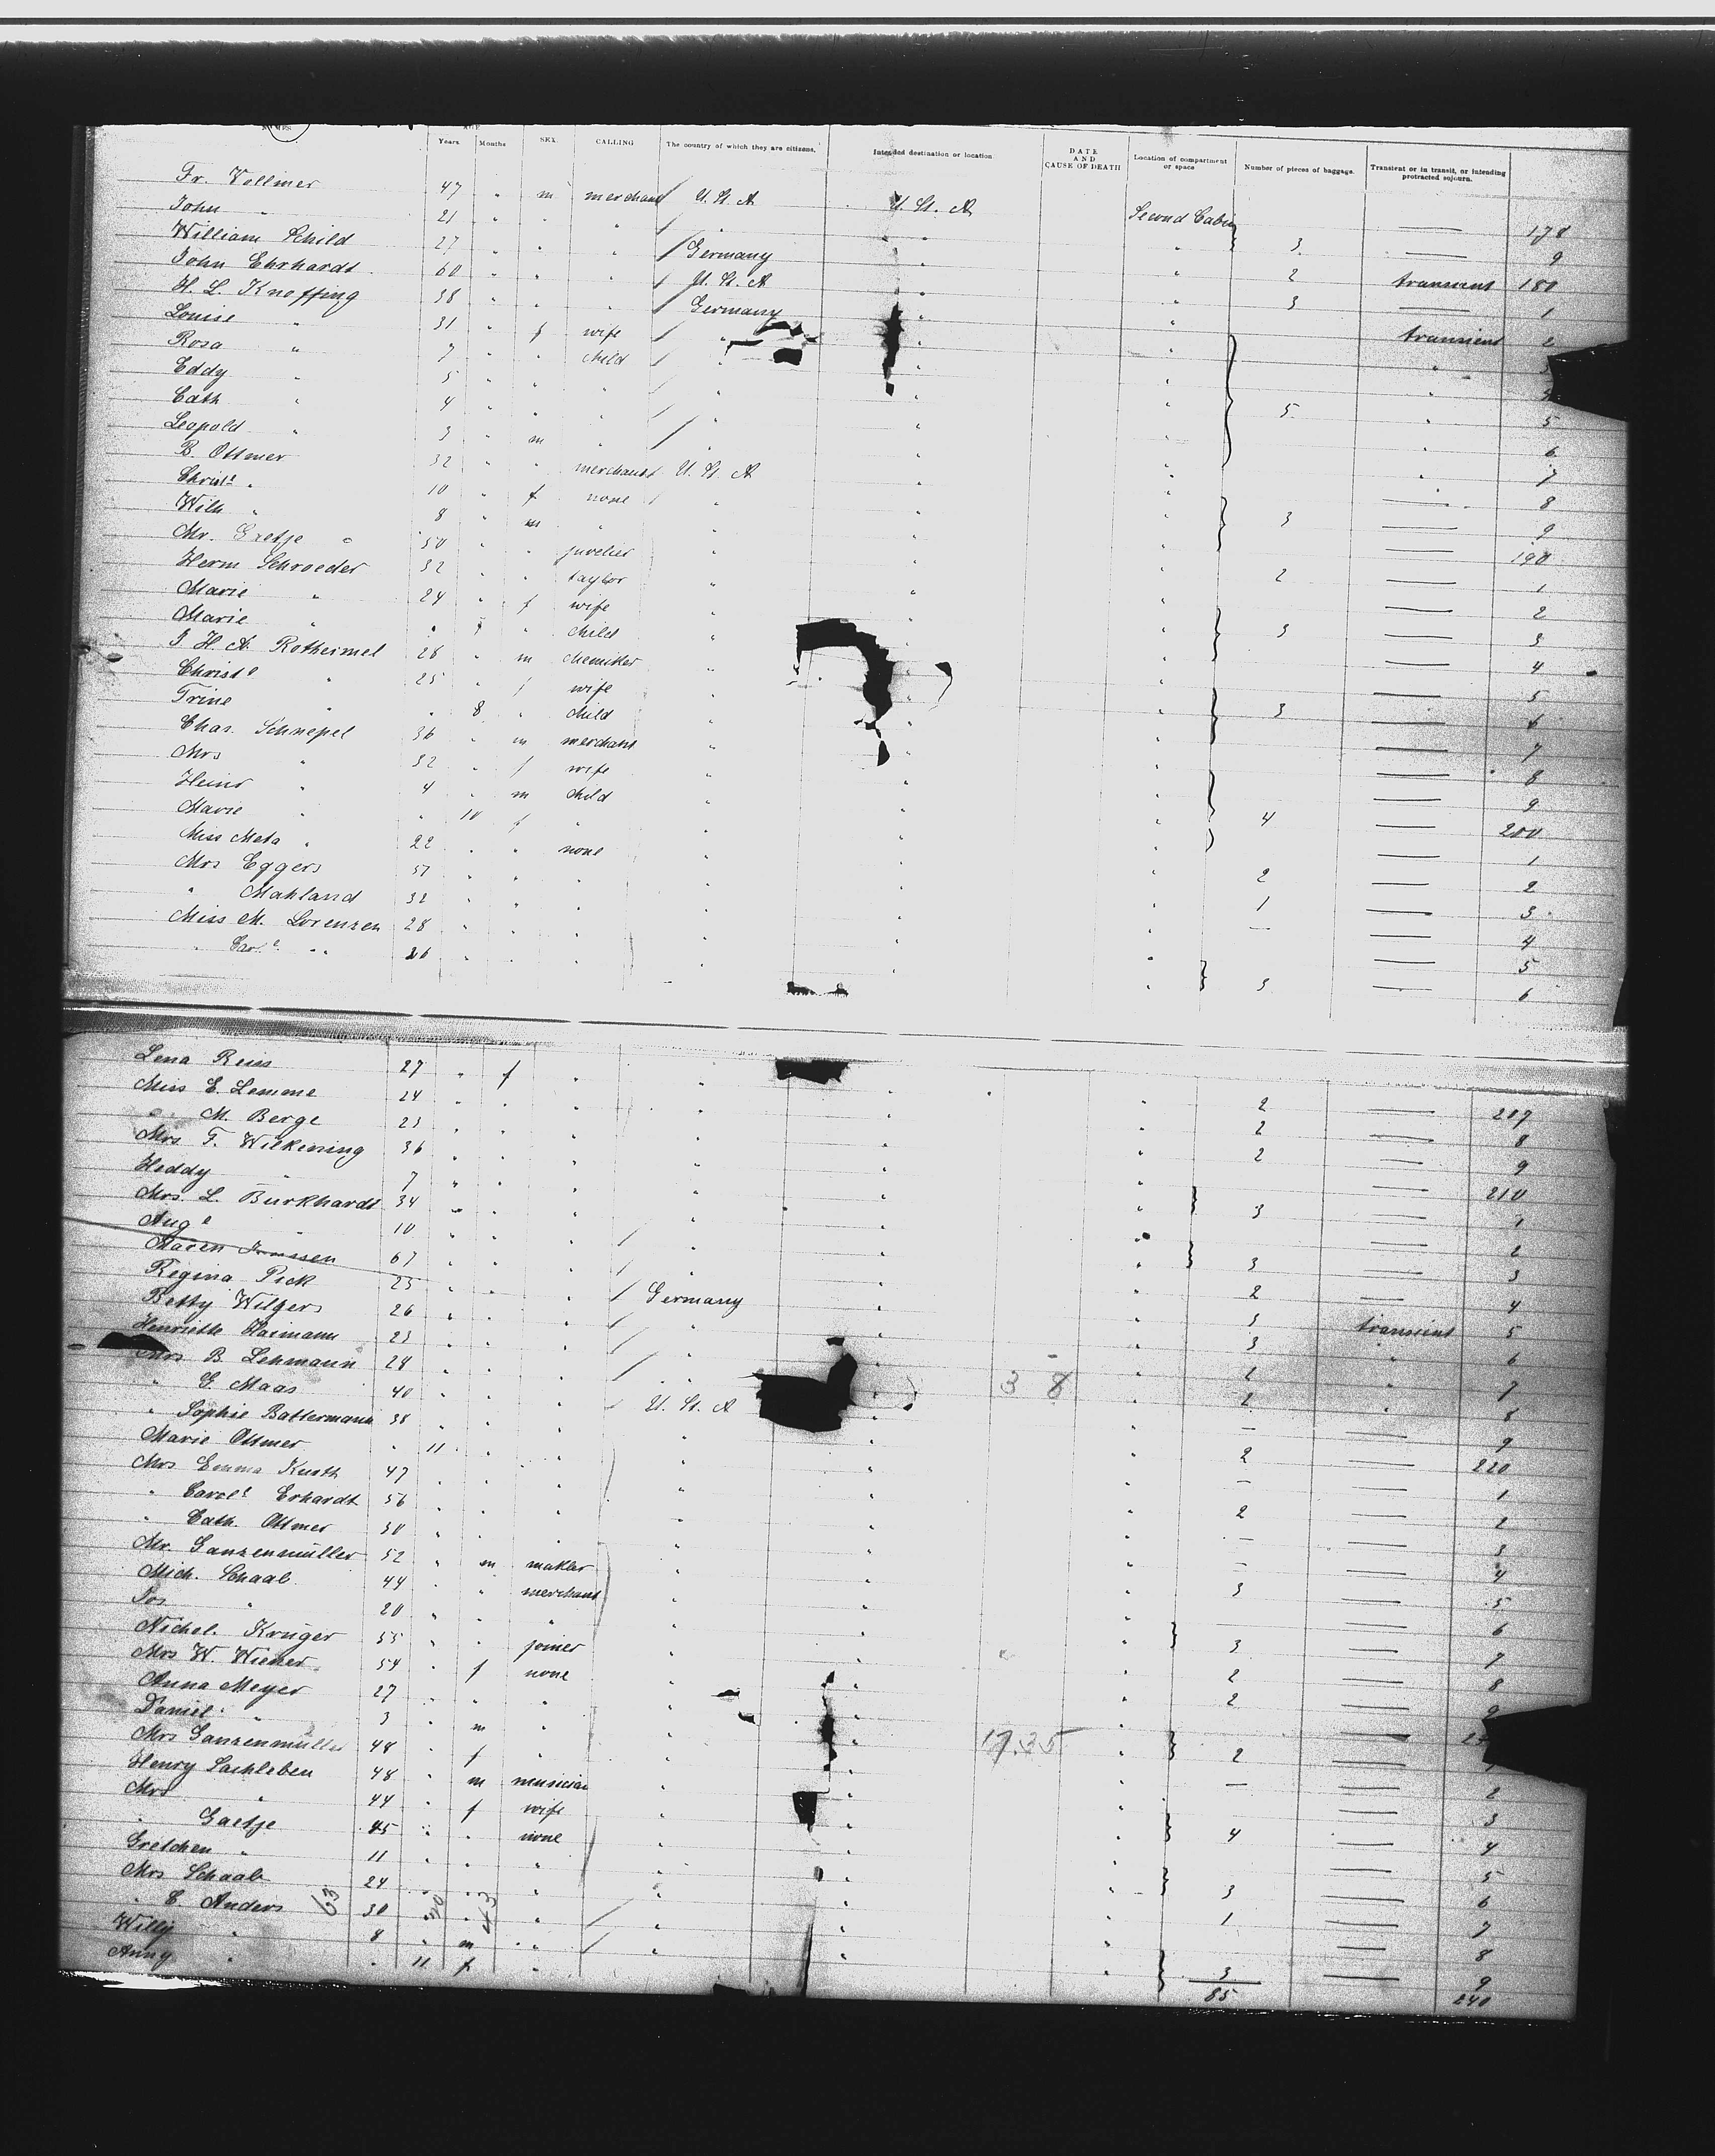 NAMES. AGE Years. Months SEX. CALLING The country of which they are citizens. Intended destination or location DATE AND CAUSE OF DEATH Location of compartment or space Number of pieces of baggage. Transient or in transit, or intending protracted sojourn.
Fr. Vollmer 47 " m merchant U. St. A U. St. A Second Cabin — 178
John " 21 " " " " " — 9
William Schild 27 " " " Germany " " 3 transient 180
John Ehrhardt 60 " " " U. St. A " " 2 — 1
H. L. Knoffing 38 " " " Germany " " 3 transient 2
Louise " 31 " f wife " " " " 3
Rosa " 7 " " child " " " "
Eddy " 5 " " " " " " 5 " 5
Cath " 4 " " " " " " " 6
Leopold " 3 " m " " " " " 7
B. Ottmer 32 " " merchant U. St. A " " — 8
Christe " 10 " f none " " " 3 — 9
Wilh " 8 " m " " " " — 190
Mr. Gretje " 50 " " juvelier " " " 2 — 1
Herm Schroeder 32 " " taylor " " " — 2
Marie " 24 " f wife " " " 3 — 3
Marie " " " child " " " — 4
J H. A. Rothermel 28 " m chemiker " " " — 5
Christe " 25 " f wife " " " 3 — 6
Trine " " 8 " child " " " — 7
Chas. Schnepel 36 " m merchant " " " — 8
Mrs " 32 " f wife " " " — 9
Heinr " 4 " m child " " " 4 — 200
Marie " " 10 f " " " " — 1
Miss Meta " 22 " " none " " " — 2
Mrs Eggers 57 " " " " " " 2 — 3
" Mahland 32 " " " " " " 1 — 4
Miss M. Lorenzen 28 " " " " " " — 5
" Care " 26 " " " " " " 3 — 6
Lena Reiss 27 " f " " " " 2 — 207
Miss E. Lemme 24 " " " " " " 2 — 8
" M. Berge 23 " " " " " " 2 — 9
Mrs. T. Wilkening 36 " " " " " " — 210
Heddy " 7 " " " " " " 3 — 1
Mrs. L. Burkhardt 34 " " " " " " — 2
Auge " 10 " " " " " " 3 — 3
Maren 67 " " " " " " 2 — 4
Regina Pick 25 " " " Germany " " 3 transient 5
Betty Wilgers 26 " " " " " " 3 " 6
Henriette Haimann 23 " " " " " " 2 " 7
Mrs B. Lehmann 24 " " " " " 3 8 " 2 " 8
" G. Maas 40 " " " U. St. A " " — — 9
" Sophie Battermann 38 " " " " " " 2 — 220
Marie Ottmer " 11 " " " " " — — 1
Mrs Emma Kurth 47 " " " " " " 2 — 2
" Carole Erhardt 56 " " " " " " — — 3
" Cath. Ottmer 30 " " " " " " — — 4
Mr. Ganzenmüller 52 " m makler " " " 3 — 5
Mich. Schaal 44 " " merchant " " " — 6
Jos " 20 " " " " " " 3 — 7
Nichol. Krüger 55 " " joiner " " " 2 — 8
Mrs W. Wiener 54 " f none " " " 2 — 9
Anna Meyer 27 " " " " " " —
Daniel " 3 " m " " " 17.35 " 2 —
Mrs Ganzenmüller 48 " f " " " " — — 2
Henry Sachleben 48 " m musician " " " — 3
Mrs " 44 " f wife " " " 4 — 4
" Gaetje 45 " " none " " " — 5
Gretchen " 11 " " " " " " 3 — 6
Mrs Schaal 24 " " " " " " 1 — 7
" C. Anders 63 30 " 43 " " " " — 8
Willy " 8 " m " " " " 3 — 9
Anny " " 11 f " " " " 85 240